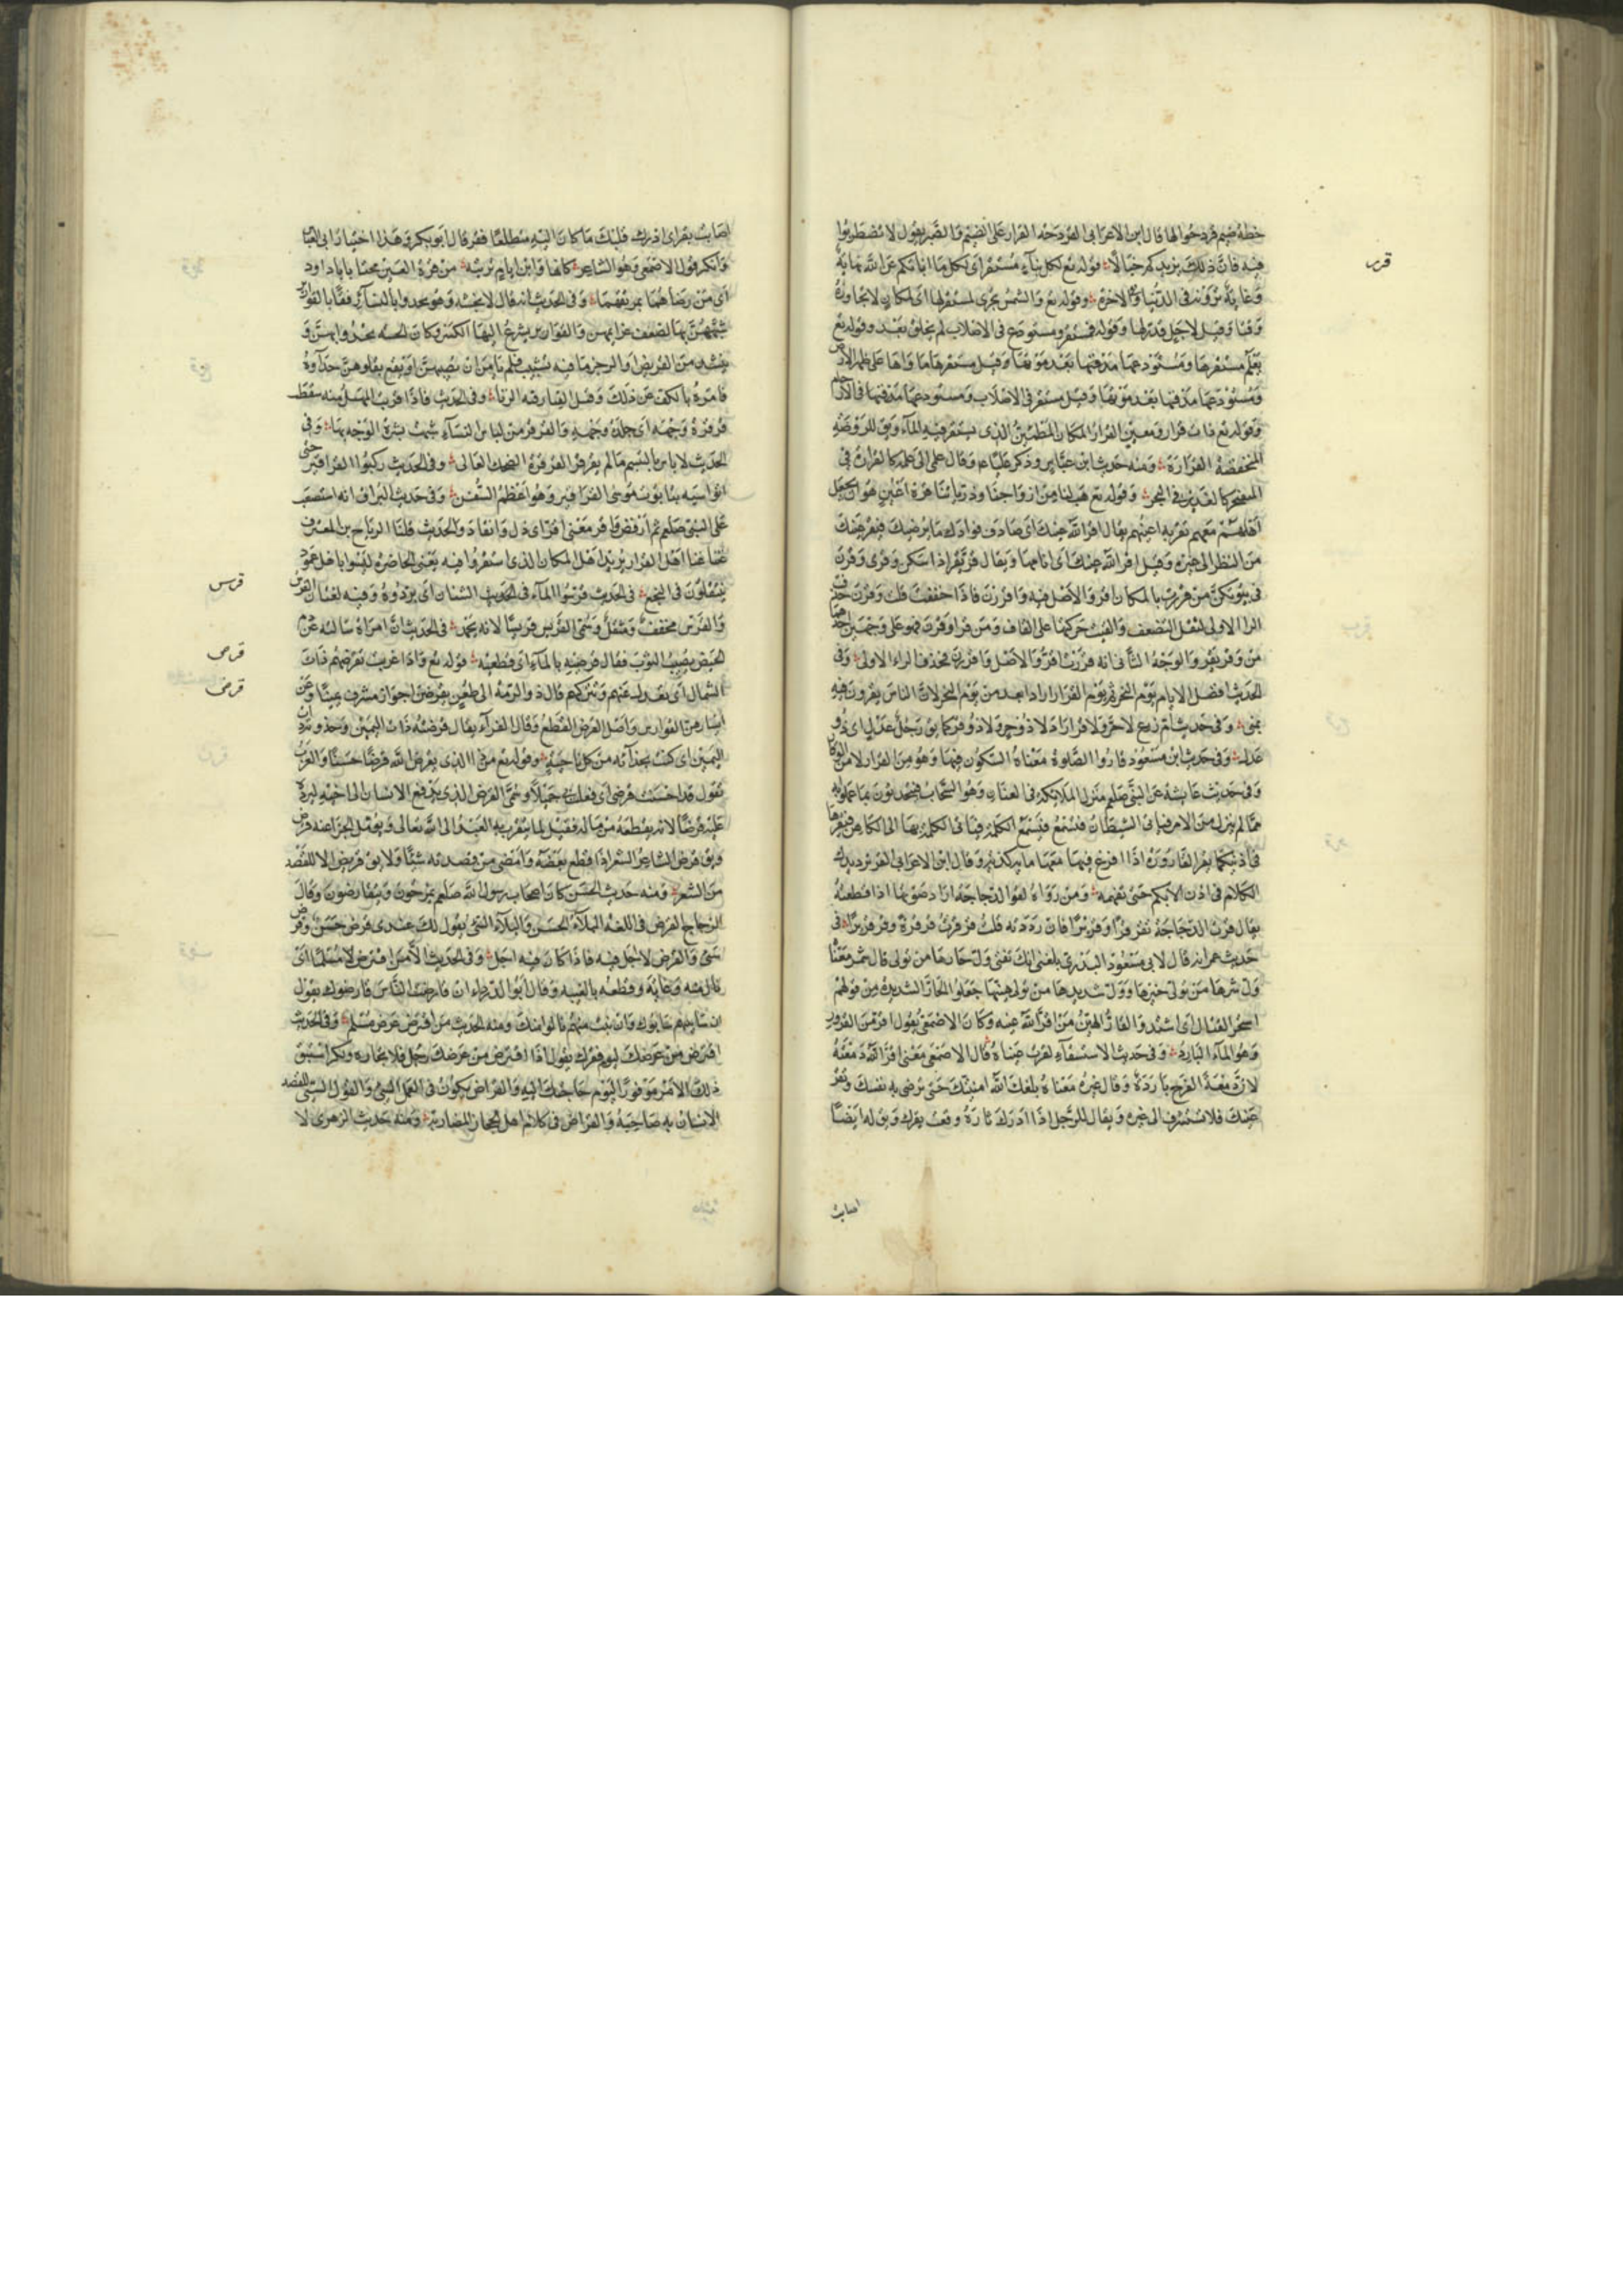 قرر
خطة ضيم قردحوا لها قال ابن الاعرابي القردحة القرار على الضيم والصبر يقول لا تضطربوا
فيه فان ذلك يزيدكم خبالا قوله تع لكل نباء مستقر اى لكل ما انباتكم عن الله نهاية
وغاية ترونه فى الدنيا والاخرة وقوله تع والشمس تجرى لمستقر لها اى لمكان لا تجاوزه
وقتا وقيل لاجل قدر لها وقوله فمستقر ومستودع فى الاصلاب لم يخلق بعد وقوله تع
يعلم مستقرها ومستودعها مدفنها بعد موتها وقيل مستقرها ماواها على ظهر الارض
ومستودعها مدفنها بعد موتها وقيل مستقر فى الاصلاب ومستودعها مدفنها فى الارحام
وقوله تع ذات قرار ومعين القرار المكان المطمئن الذى يستقر فيه الماء ويق للروضة
المنخفضة القرارة ومنه حديث ابن عباس وذكر عليا عم وقال علمى الى علمه كالقرارة فى
المثعنجر كالغدير فى البحر وقوله تع هب لنا من ازواجنا وذرياتنا قرة اعين هو ان يجعل
اهلهم معهم تقر به اعينهم يقال اقر الله عينك اى صادف فوادك ما يرضيك فتقر عينك
من النظر الى غيره وقيل اقر الله عينك اى انامها ويقال قر يقر اذا سكن وقرى وقرن
فى بيوتكن من قررت بالمكان اقر والاصل فيه واقررن فاذا خففت قلت وقرن حذفت
الرا الاولى لثقل التضعيف والقيت حركتها على القاف ومن قرا وقرن فهو على وجهين احدهما
من وقر يقر والوجه الثانى انه قررت اقر والاصل واقررن فحذف الراء الاولى وفى
الحديث افضل الايام يوم النحر ثم يوم القر اراد الغد من يوم النحر لان الناس يقرون فيه
بمنى وفى حديث ام زرع لا حر ولا قر اراد لا ذو حر ولا ذو قر كما يق رجل عدل اى ذو
عدل وفى حديث ابن مسعود قاروا الصلوة معناه السكون فيها وهو من القرار لا من الوقار
وفى حديث عايشة عن النبى صلعم تنزل الملائكة فى العنان وهو السحاب فيتحدثون بما علموا به
مما لم ينزل من الامر فياتى الشيطان فتستمع فتسمع الكلمة فياتى الكلمة بها الى الكاهن فيقرها
فى اذنه كما يقر القارورة اذا افرغ فيها معها ماية كذبة وقال ابن الاعرابى القر ترديدك
الكلام فى اذن الابكم حتى تفهمه ومن رواه كقر الدجاجة اراد صوتها اذا قطعته
يقال قرت الدجاجة تقر قرا وقريرا فان رددته قلت قرقرت قرقرة وقرقريرا فى
حديث عمر انه قال لابى مسعود البدرى بلغنى انك تفتى ول حارها من تولى قارها قال شمر معناه
ول شرها من تولى خيرها وول شديدها من تولى هينتها جعلوا الحار الشديدة من قولهم
استحر القتال اى اشتد والقار الهين من اقر الله عينه وكان الاصمعى يقول اقر من القرور
وهو الماء البارد وفى حديث الاستسقاء لقرت عيناه قال الاصمعى معنى اقر الله دمعته
لان دمعة الفرح باردة وقال غيره معناه بلغك الله امنيتك حتى ترضى به نفسك وتقر
عينك فلا تستشرف الى غيره ويقال للرجل اذا ادرك ثاره وقعت بقرك ويق له ايضا
اصابت
اصابت بقر اى ادرك قلبك ما كان اليه متطلعا فقر قال ابو بكر وهذا اختيار ابى العباس
وانكر قول الاصمعى وهو الشاعر
اى من رضاهما بمرتعهما وفى الحديث انه قال لانجشه وهو يحدوا بالنساء رفقا بالقوارير
شبههن بها لضعف عزايمهن والقوارير يسرع اليها الكسر وكان انجشه يحدوا بهن و
ينشد من القريض والرجز ما فيه تشبيب فلم يامن ان تصيبهن او يقع بقلوبهن حداوه
فامره بالكف عن ذلك وقيل الغنا رقية الزنا وفى الحديث فاذا قرب المهل منه سقط
قرقرة وجهه اى جلدة وجهه والقرقر من لباس النساء شبهت بشرة الوجه بها وفى
الحديث لا باس بالتبسم ما لم يقرقر القرقرة الضحك العالى وفى الحديث ركبوا القراقير حتى
اتوا اسيه بتابوت موسى القراقير وهو اعظم السفن وفى حديث البراق انه استصعب
على النبى صلعم ثم ارفض واقر معنى اقر اى ذل وانقاد والحديث قلنا لرباح بن المعترف
غننا غنا اهل القرار يريد اهل المكان الذى استقروا فيه يعنى الحاضرة ليسوا باهل عمود
ينتقلون فى النجع فى الحديث قرسوا الماء فى الشنان اى بردوه وفيه لغتان القرس
قرس
والقرس مخفف ومثقل وسمى القريس قريسا لانه يجمد فى الحديث ان امراة سالته عن دم
قرص
الحيض يصيب الثوب فقال قرصيه بالماء اى قطعيه قوله تع واذا غربت تقرضهم ذات
قرض
الشمال اى تعدل عنهم وتتركهم قال ذو الرمة الى ظعن يقرضن اجواز مشرف يمينا وعن
ايسارهن الفوارس واصل القرض القطع وقال الفراء يقال قرضته ذات اليمين وحذوته ذات
اليمين اى كنت بحذائه من كل ناحية وقوله تع من ذا الذى يقرض الله قرضا حسنا والعرب
تقول قد احسنت قرضى اى فعلت بى جميلا وسمى القرض الذى يدفع الانسان الى اخيه ليرده
عليه قرضا لانه يقطعه من ماله فقيل لما يتقرب به العبد الى الله تعالى ويعمل لجزا عنه قرض
ويق قرض الشاعر الشعر اذا قطع بعضه وامضى من قصيدته شيئا ولا يق قريض الا للقصيد
من الشعر ومنه حديث الحسن كان اصحاب رسول الله صلعم يمزحون ويتقارضون وقال
الزجاج القرض فى اللغة البلاء الحسن والبلاء السيى يقول لك عندى قرض حسن وقرض
سيى والقرض لا اجل فيه فاذا كان فيه اجل وفى الحديث الا من اقترض امرا مسلما اى
نال منه وعابه وقطعه بالغيبة وقال ابو الدرداء ان قارضت الناس قارضوك يقول
ان سابيتهم عابوك وان نلت منهم نالوا منك ومنه الحديث من اقترض عرض مسلم وفى الحديث
اقترض من عرضك ليوم فقرك يقول اذا اقترض من عرضك رجل فلا تجازه ولكن استبق
ذلك الاجر موفورا ليوم حاجتك اليه والقراض يكون فى العمل السيى والقول السيى يقصد
الانسان به صاحبه والقراض فى كلام اهل الحجاز المضاربة ومنه حديث الزهرى لا